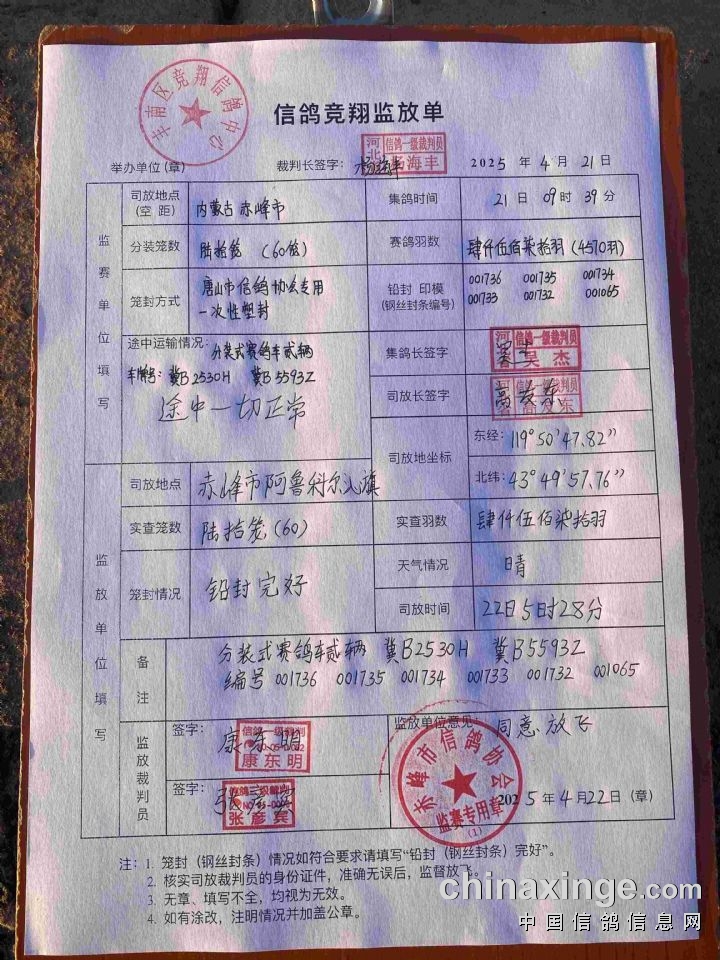 丰南区竞翔信鸽中心
信鸽竞翔监放单
举办单位(章)
裁判长签字:
河北 信鸽一级裁判员 杨海丰
2025 年 4 月 21 日
监赛单位填写
司放地点(空 距)
内蒙古 赤峰市
集鸽时间
21 日 09 时 39 分
分装笼数
陆拾笼 (60笼)
赛鸽羽数
肆仟伍佰柒拾羽(4570羽)
笼封方式
唐山市信鸽协会专用
一次性塑封
铅封 印模
(钢丝封条编号)
001736 001735 001734
001733 001732 001065
途中运输情况:
分装式赛鸽车贰辆
车牌号: 冀B2530H 冀B5593Z
途中一切正常
集鸽长签字
信鸽一级裁判员
吴杰
司放长签字
高友东
信鸽一级裁判员
司放地坐标
东经: 119°50'47.82"
北纬: 43°49'57.76"
监放单位填写
司放地点
赤峰市阿鲁科尔沁旗
实查笼数
陆拾笼(60)
实查羽数
肆仟伍佰柒拾羽
笼封情况
铅封完好
天气情况
晴
司放时间
22日5时28分
备注
分装式赛鸽车贰辆 冀B2530H 冀B5593Z
编号 001736 001735 001734 001733 001732 001065
监放裁判员
签字:
康东明
信鸽一级裁判
康东明
签字:
张彦宾
监放单位意见:
同意放飞
赤峰市信鸽协会
监赛专用章
(1)
2025 年 4 月 22 日 (章)
注: 1. 笼封(钢丝封条)情况如符合要求请填写“铅封(钢丝封条)完好”。
2. 核实司放裁判员的身份证件,准确无误后,监督放飞。
3. 无章、填写不全,均视为无效。
4. 如有涂改,注明情况并加盖公章。
chinaxinge.com
中国信鸽信息网